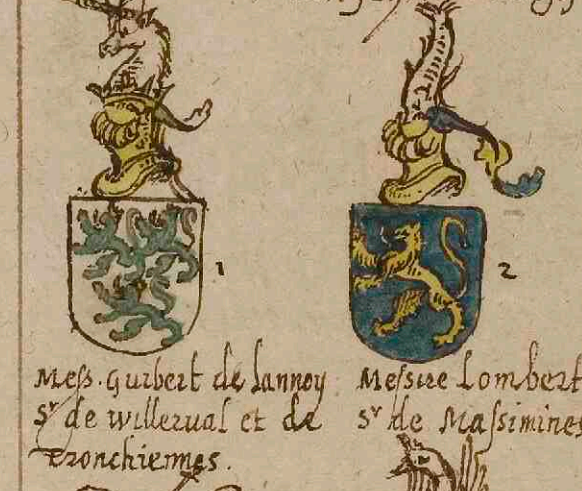 1
2
Mess. Guibert de lannoy
Sr de willerual et de
Tronchiennes.
Messire Lombert
Sr de Massimines